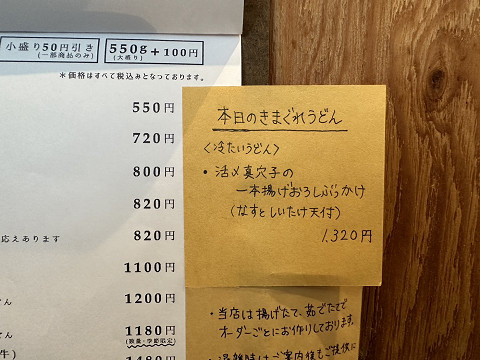 小盛り50円引き
(一部商品のみ)
550g+100円
(大盛り)
*価格はすべて税込みとなっております。
550円
720円
800円
820円
応えあります 820円
1100円
1200円
1180円
(数量・季節限定)
本日のきまぐれうどん
<冷たいうどん>
・活〆真穴子の
一本揚げおろしぶっかけ
(なすとしいたけ天付)
1,320円
・当店は揚げたて、茹でたてで
オーダーごとにお作りしております。